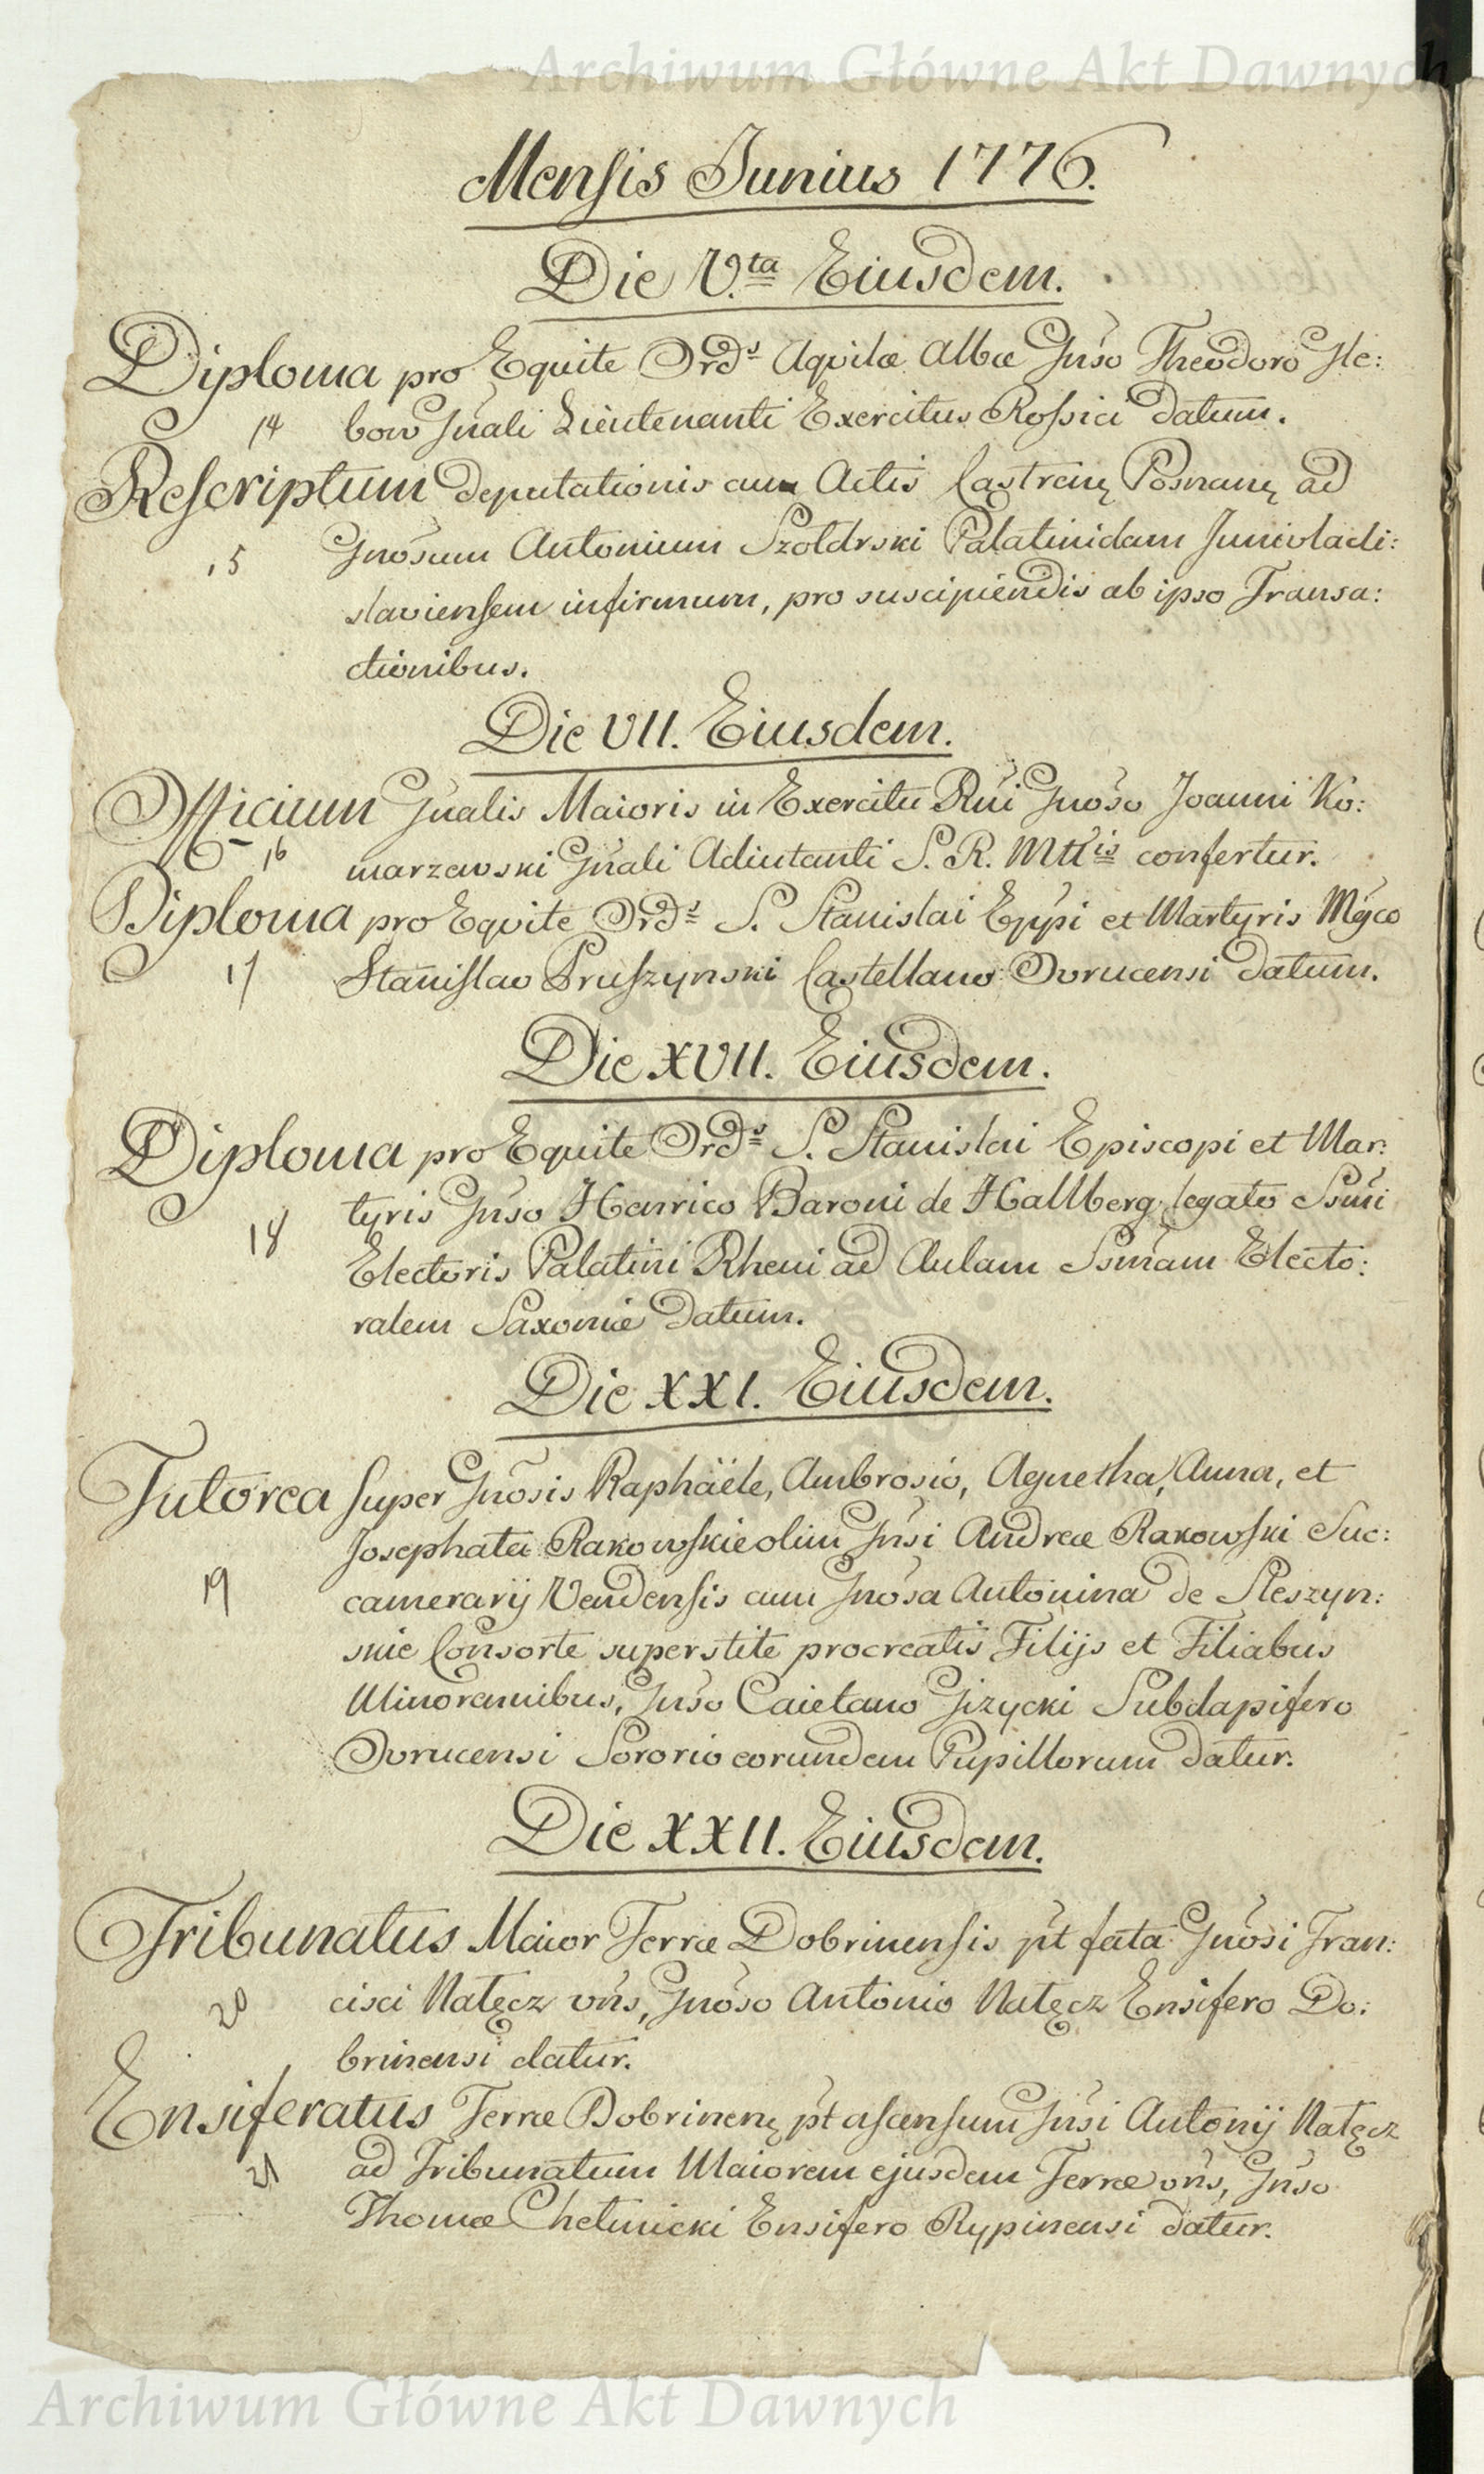 Archiwum Główne Akt Dawnych
Mensis Junius 1776.
Die V.ta Eiusdem.
Diploma pro Equite Ords Aquilæ Albæ Gnso Theodoro Gle:
14 bow Gnali Lieutenanti Exercitus Rossici datum.
Rescriptum deputationis cum Actis Castrenę Posnanę ad
15 Gnosum Antonium Szoldrski Palatinidam Junivladi:
slaviensem infirmum, pro suscipiendis ab ipso Transa:
ctionibus.
Die VII. Eiusdem.
Officium Gnalis Maioris in Exercitu Rni Gnoso Joanni Ko:
16 marzewski Gnali Adiutanti S. R. Mttis confertur.
Diploma pro Equite Ords S. Stanislai Eppi et Martyris Mgco
17 Stanislao Pruszynski Castellano Ovrucensi datum.
Die XVII. Eiusdem.
Diploma pro Equite Ords S. Stanislai Episcopi et Mar:
tyris Gnso Henrico Baroni de Hallberg legato Ssmi
18 Electoris Palatini Rheni ad Aulam Ssmam Electo:
ralem Saxoniæ datum.
Die XXI. Eiusdem.
Tutorea super Gnosis Raphäele, Ambrosio, Agnetha, Anna, et
Josephata Rakowskie olim Gnsi Andreæ Rakowski Suc:
19 camerarij Vendensis cum Gnosa Antonina de Sleszyn:
skie Consorte superstite procreatis Filijs et Filiabus
Minorennibus, Gnso Caietano Gizycki Subdapifero
Ovrucensi Sororio eorundem Pupillorum datur.
Die XXII. Eiusdem.
Tribunatus Maior Terræ Dobrinensis pt fata Gnosi Fran:
20 cisci Nałęcz vns, Gnoso Antonio Nałęcz Ensifero Do:
brinensi datur.
Ensiferatus Terræ Dobrinenę pt ascensum Gnsi Antonij Nałęcz
21 ad Tribunatum Maiorem ejusdem Terræ vns, Gnso
Thomæ Chelmicki Ensifero Rypinensi datur.
Archiwum Główne Akt Dawnych